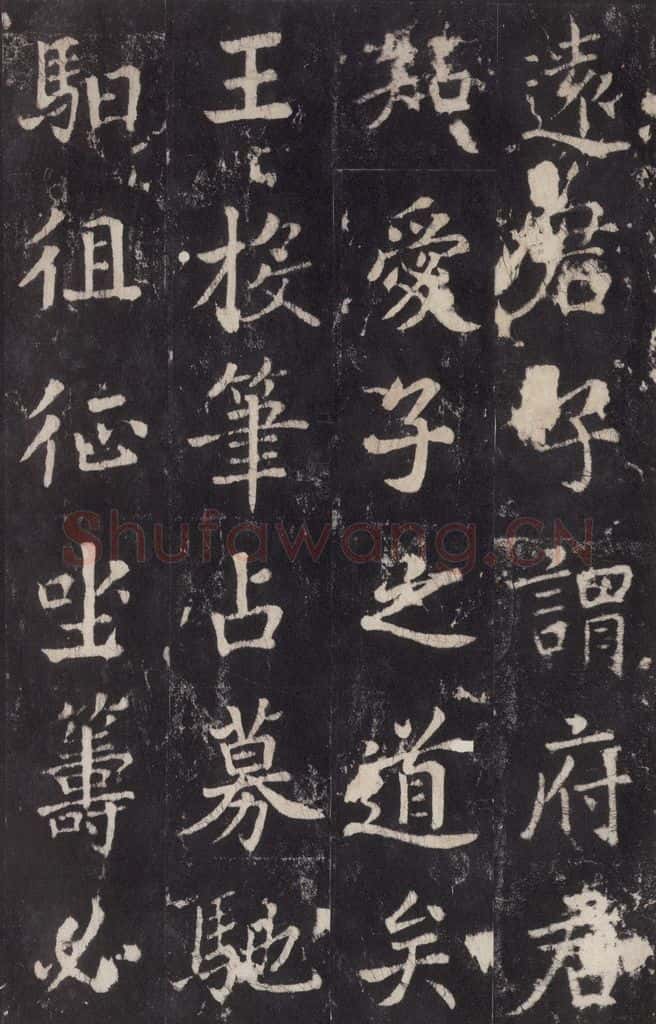 遠君子謂府君
愛子之道矣
王投筆占募馳
馹徂征坐籌必
Shufawang.CN